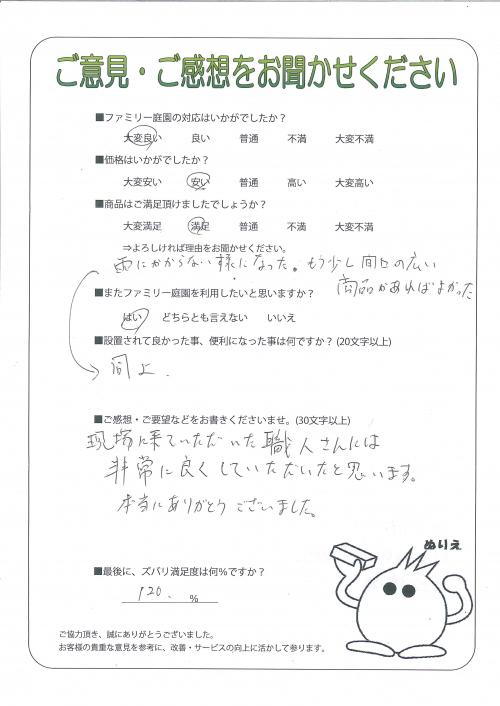 ご意見・ご感想をお聞かせください
■ファミリー庭園の対応はいかがでしたか？
大変良い 良い 普通 不満 大変不満
■価格はいかがでしたか？
大変安い 安い 普通 高い 大変高い
■商品はご満足頂けましたでしょうか？
大変満足 満足 普通 不満 大変不満
⇒よろしければ理由をお聞かせください。
雨にかからない様になった。もう少し間口の広い
商品があればよかった
■またファミリー庭園を利用したいと思いますか？
はい どちらとも言えない いいえ
■設置されて良かった事、便利になった事は何ですか？(20文字以上)
同上.
■ご感想・ご要望などをお書きくださいませ。(30文字以上)
現場に来ていただいた職人さんには
非常に良くしていただいたと思います。
本当にありがとうございました。
ぬりえ
■最後に、ズバリ満足度は何%ですか？
120. %
ご協力頂き、誠にありがとうございました。
お客様の貴重な意見を参考に、改善・サービスの向上に活かして参ります。